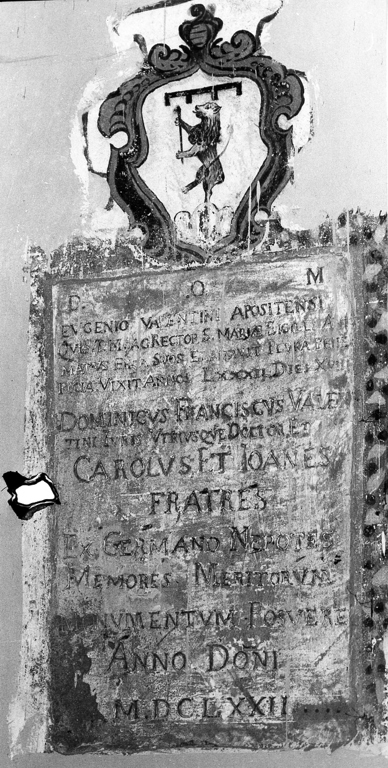 D. O M
EVGENIO VALENTINI APOSITENSI
RECTOR S. MARIÆ
SVOS
VIXIT ANNOS LXXXII DIES
DOMINICVS FRANCISCVS VALEN
TINI IVRIS VTRIVSQVE DOCTOR ET
CAROLVS ET IOANES
FRATRES
EX GERMANO NEPOTES
MEMORES MERITORVM
NVMENTVM POSVERE
ANNO DONI
M.DCLXXII